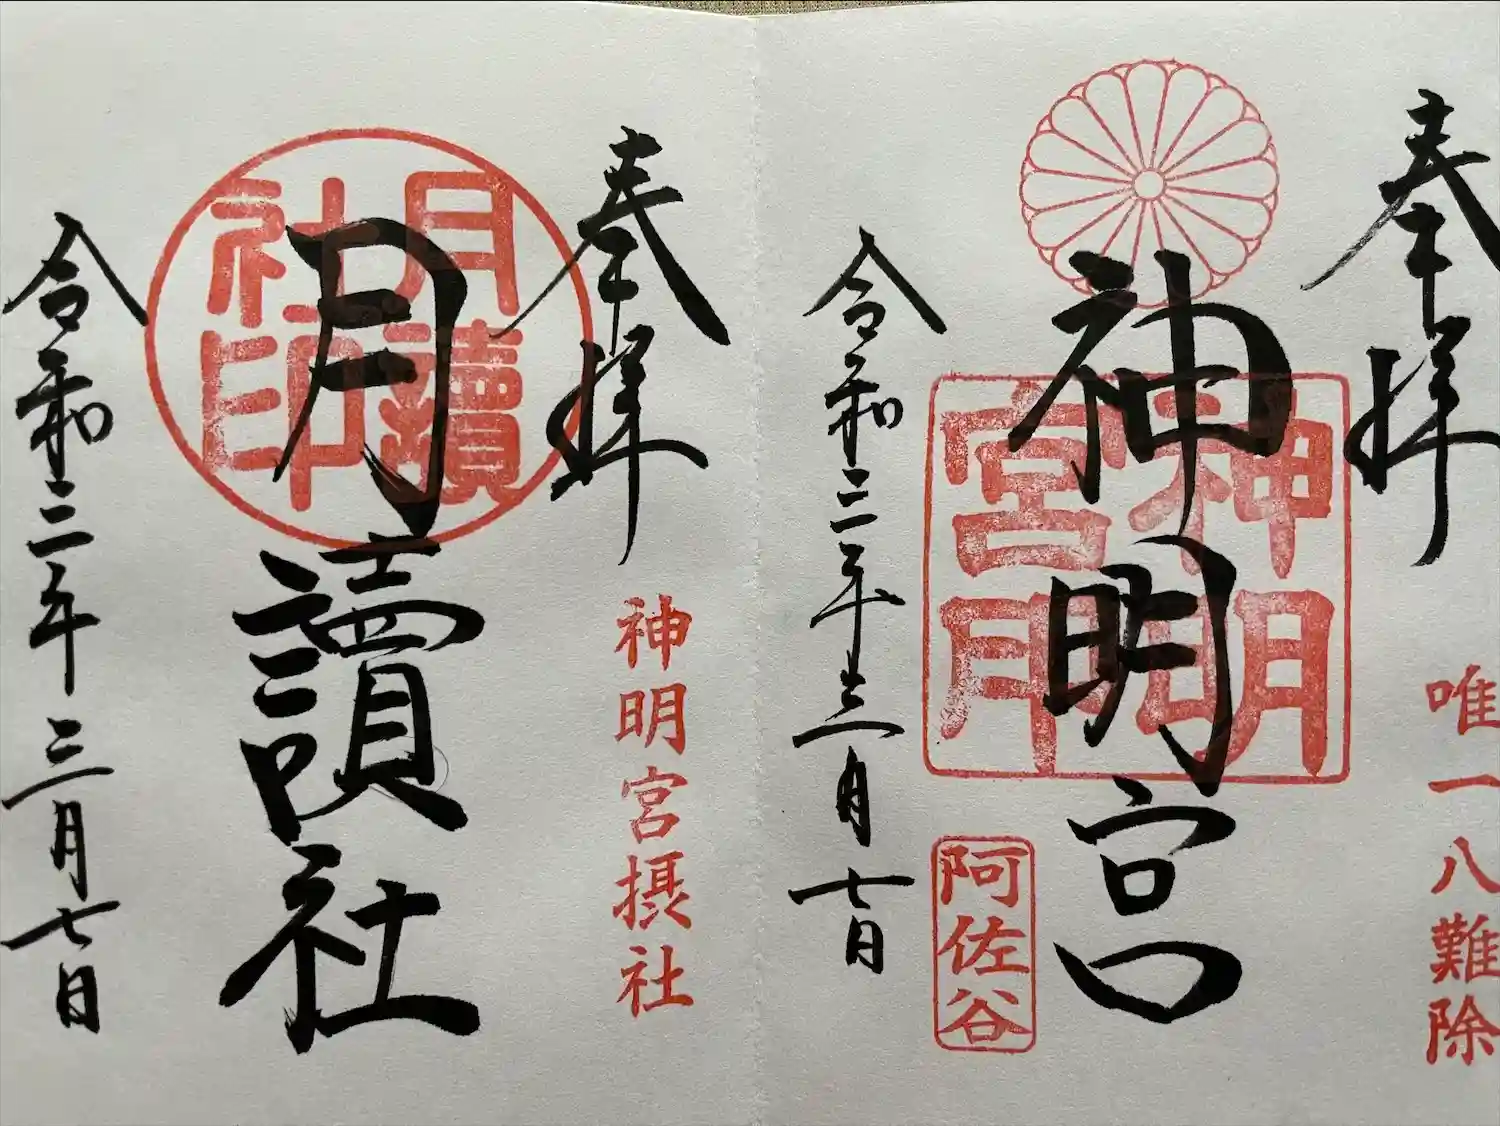 奉拝
唯一八難除
神明宮
神明宮印
阿佐谷
令和二年三月七日
奉拝
神明宮摂社
月讀社
月讀社印
令和二年三月七日